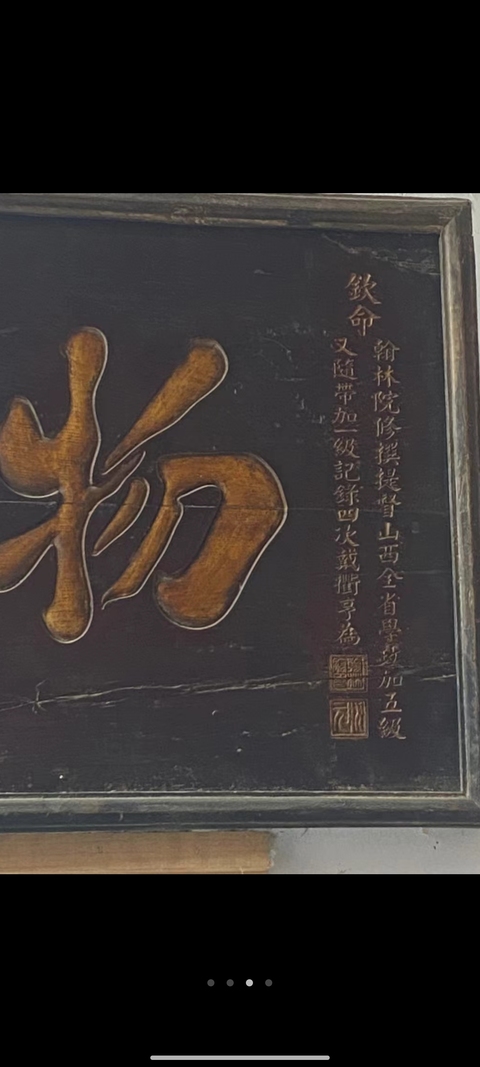 欽命
翰林院修撰提督山西全省學政加五級
又隨帶加一級記錄四次戴衢亨為
物